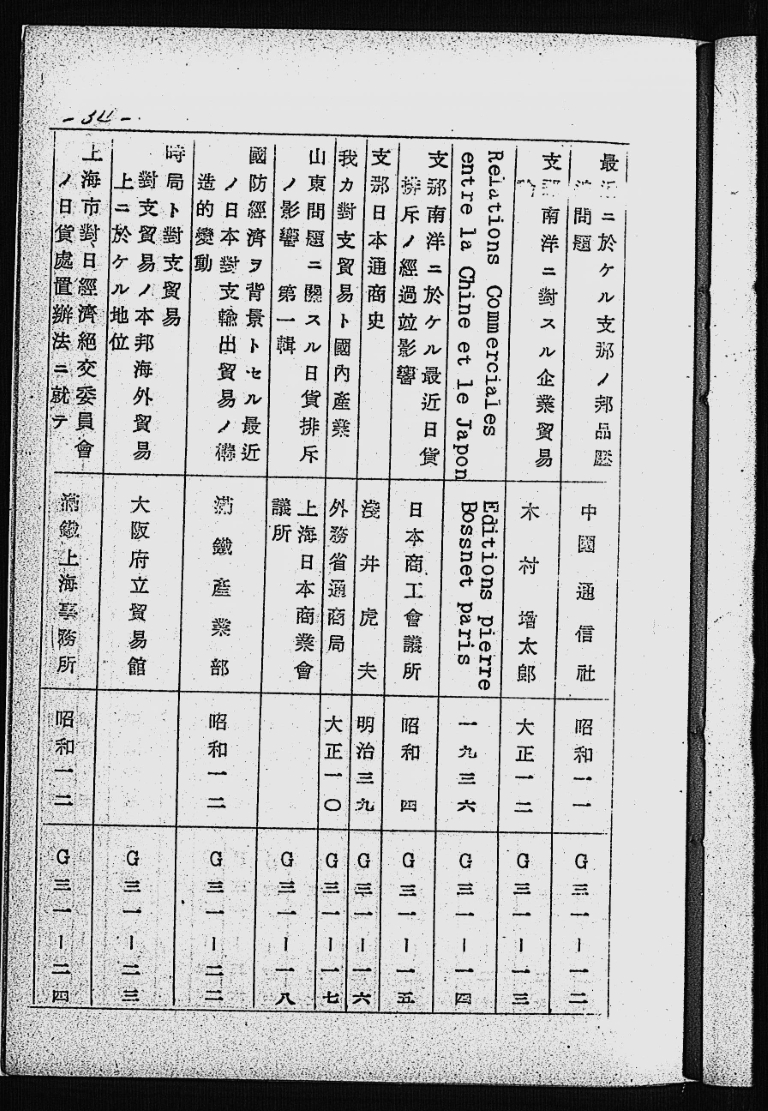 -34-
最近ニ於ケル支那ノ邦品
問題
中國通信社
昭和一一
G三一ー一二
支那南洋ニ對スル企業貿易
木村增太郎
大正一二
G三一ー一三
Relations Commerciales
entre la Chine et le Japon
Editions pierre
Bossnet paris
一九三六
G三一ー一四
支那南洋ニ於ケル最近日貨
排斥ノ經過竝影響
日本商工會議所
昭和 四
G三一ー一五
支那日本通商史
淺井虎夫
明治三九
G三一ー一六
我カ對支貿易ト國內產業
外務省通商局
大正一〇
G三一ー一七
山東問題ニ關スル日貨排斥
ノ影響 第一輯
上海日本商業會
議所
G三一ー一八
國防經濟ヲ背景トセル最近
ノ日本對支輸出貿易ノ構
造的變動
滿鐵產業部
昭和一二
G三一ー二二
時局ト對支貿易
對支貿易ノ本邦海外貿易
上ニ於ケル地位
大阪府立貿易館
G三一ー二三
上海市對日經濟絕交委員會
ノ日貨處置辦法ニ就テ
滿鐵上海事務所
昭和一二
G三一ー二四